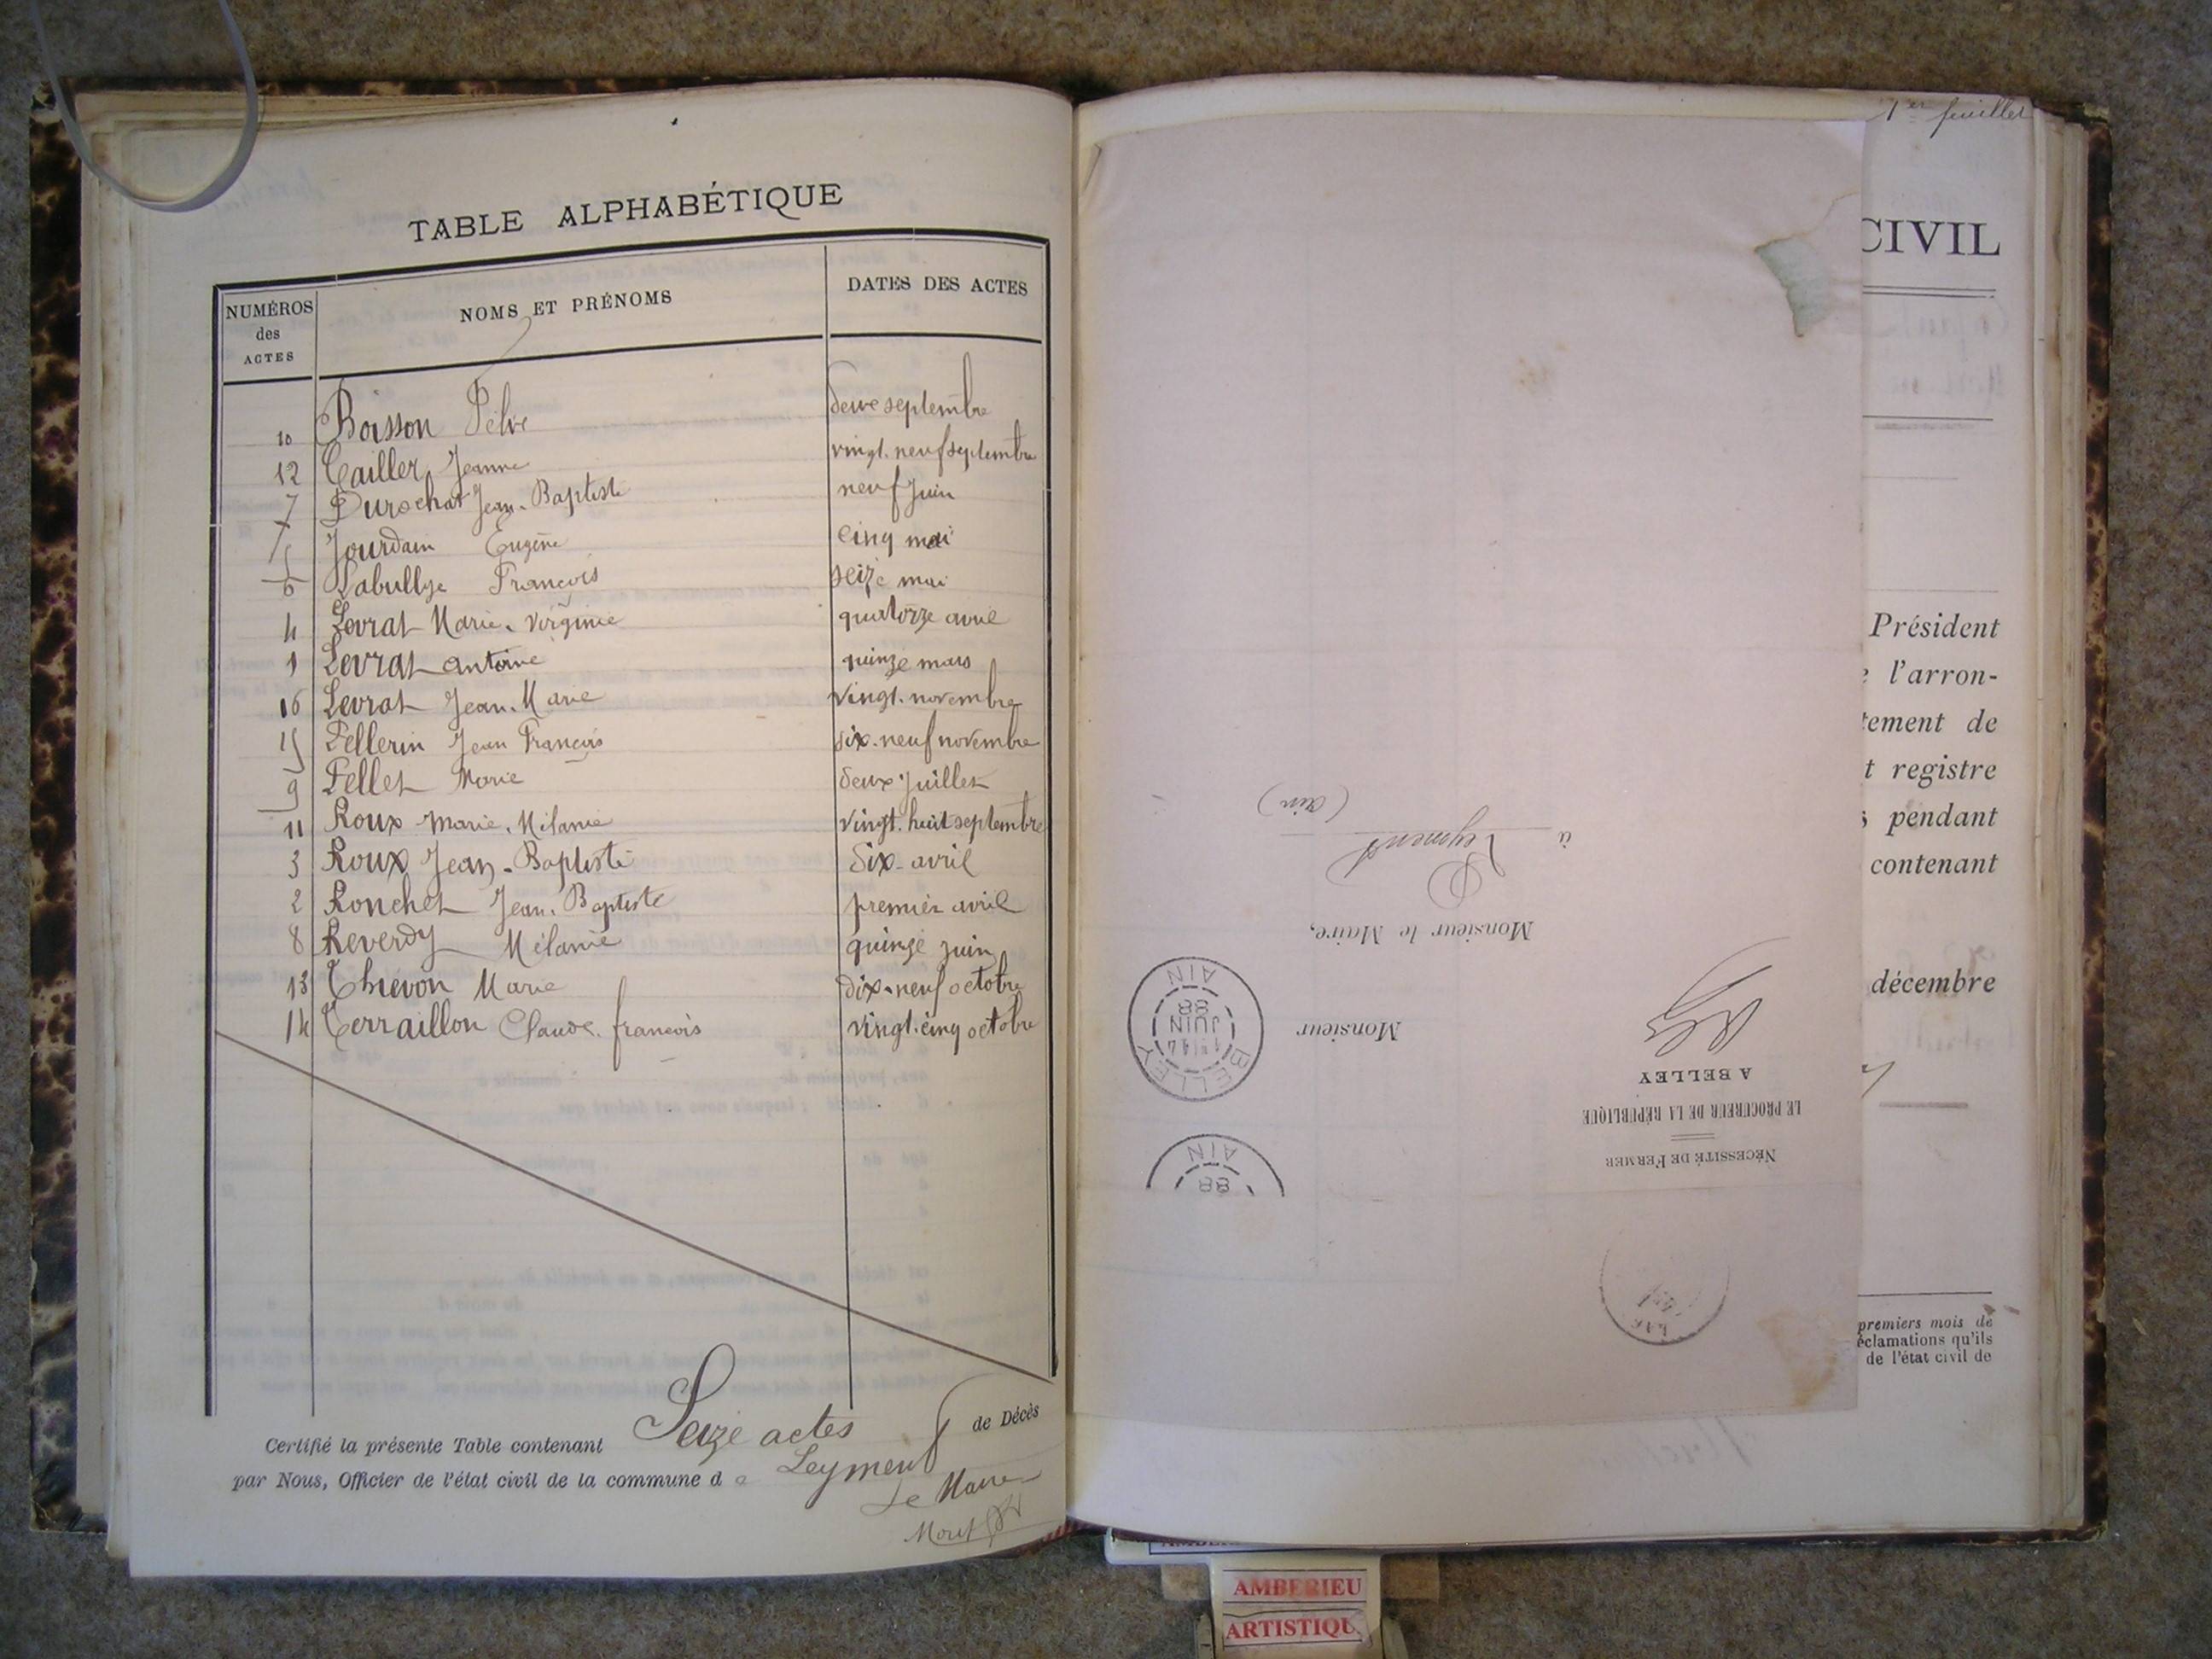 TABLE ALPHABÉTIQUE
NUMÉROS des ACTES
NOMS ET PRÉNOMS
DATES DES ACTES
10 Boisson deux septembre
12 Cailler Jeanne vingt-neuf septembre
7 Durochat Jean-Baptiste neuf Juin
5 Jourdain Eugène cinq mai
6 Labullye François seize mai
4 Levrat Marie-Virginie quatorze avril
1 Levrat antoine quinze mars
16 Levrat Jean-Marie vingt-novembre
15 Pellerin Jean François dix-neuf novembre
9 Pellet Marie deux Juillet
11 Roux Marie-Mélanie vingt-huit septembre
3 Roux Jean-Baptiste dix-avril
2 Ronchet Jean-Baptiste premier avril
8 Reverdy Mélanie quinze juin
13 Thievon Marie dix-neuf octobre
14 Terraillon Claude-françois vingt-cinq octobre
Certifié la présente Table contenant Seize actes de Décès
par Nous, Officier de l'état civil de la commune d e Leyment
Le Maire
1er feuillet
CIVIL
Président
l'arron-
tement de
t registre
s pendant
contenant
décembre
premiers mois de
éclamations qu'ils
de l'état civil de
NÉCESSITÉ DE FERMER
LE PROCUREUR DE LA RÉPUBLIQUE
A BELLEY
Monsieur
Monsieur le Maire,
à Leyment
(ain)
BELLEY
14
JUIN
88
AIN
88
AIN
AMBERIEU
ARTISTIQU